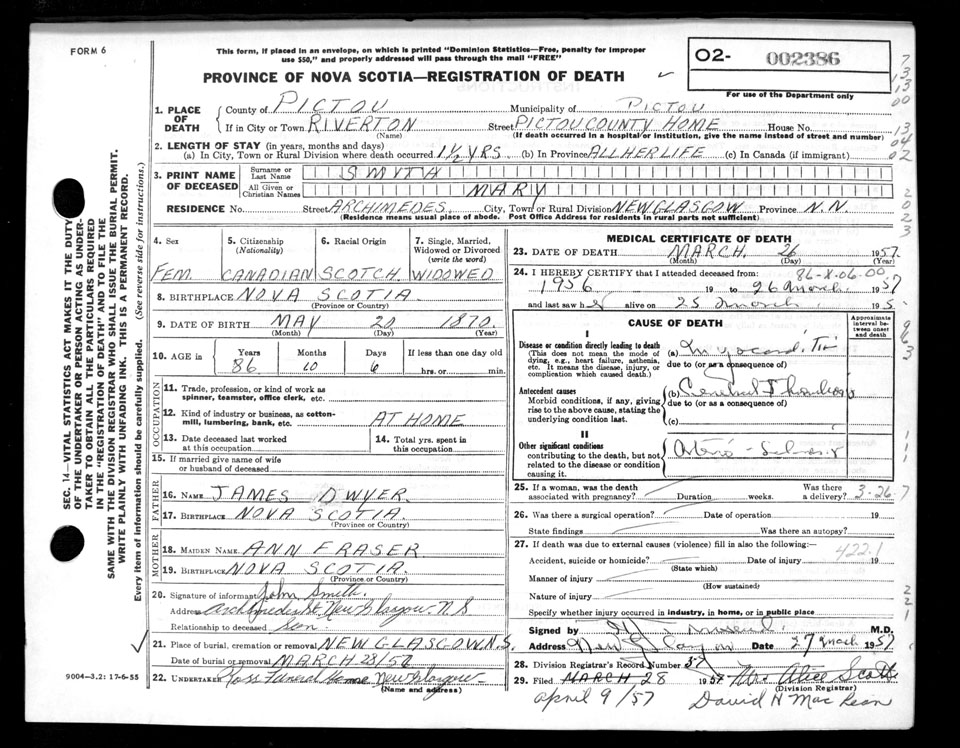 FORM 6
This form, if placed in an envelope, on which is printed "Dominion Statistics—Free, penalty for improper
use $50," and properly addressed will pass through the mail "FREE"
PROVINCE OF NOVA SCOTIA—REGISTRATION OF DEATH
02- 002386
For use of the Department only
1. PLACE OF DEATH
County of PICTOU Municipality of PICTOU
If in City or Town RIVERTON Street PICTOU COUNTY HOME House No.
(Name) (If death occurred in a hospital or institution, give the name instead of street and number)
2. LENGTH OF STAY (in years, months and days)
(a) In City, Town or Rural Division where death occurred 1½ YRS (b) In Province ALL HER LIFE (c) In Canada (if immigrant)
3. PRINT NAME OF DECEASED
Surname or Last Name SMITH
All Given or Christian Names MARY
RESIDENCE No. Street ARCHIMEDES City, Town or Rural Division NEW GLASGOW Province N.N.
(Residence means usual place of abode. Post Office Address for residents in rural parts not sufficient)
4. Sex
FEM.
5. Citizenship (Nationality)
CANADIAN
6. Racial Origin
SCOTCH
7. Single, Married, Widowed or Divorced (write the word)
WIDOWED
8. BIRTHPLACE NOVA SCOTIA
(Province or Country)
9. DATE OF BIRTH MAY 20 1870.
(Month) (Day) (Year)
10. AGE in Years Months Days If less than one day old
86 10 6 hrs. or min.
OCCUPATION
11. Trade, profession, or kind of work as
spinner, teamster, office clerk, etc.
12. Kind of industry or business, as cotton-
mill, lumbering, bank, etc. AT HOME
13. Date deceased last worked
at this occupation
14. Total yrs. spent in
this occupation
15. If married give name of wife
or husband of deceased
FATHER
16. NAME JAMES DWYER.
17. BIRTHPLACE NOVA SCOTIA.
(Province or Country)
MOTHER
18. MAIDEN NAME ANN FRASER
19. BIRTHPLACE NOVA SCOTIA.
(Province or Country)
20. Signature of informant John Smith.
Address Archimedes St. New Glasgow. N S
Relationship to deceased Son
21. Place of burial, cremation or removal NEW GLASGOW N.S.
Date of burial or removal MARCH 28/57
22. UNDERTAKER Ross Funeral Home New Glasgow
(Name and address)
9004-3.2: 17-6-55
MEDICAL CERTIFICATE OF DEATH
23. DATE OF DEATH MARCH. 26 1957.
(Month) (Day) (Year)
24. I HEREBY CERTIFY that I attended deceased from: 86-X.06.00
1956 19 to 26 March 1957
and last saw h alive on 25 March 195
CAUSE OF DEATH
Approximate interval between onset and death
I
Disease or condition directly leading to death
(This does not mean the mode of dying, e.g., heart failure, asthenia, etc. It means the disease, injury, or complication which caused death.)
(a)
due to (or as a consequence of)
Antecedent causes
Morbid conditions, if any, giving rise to the above cause, stating the underlying condition last.
(b) Cerebral
due to (or as a consequence of)
(c)
II
Other significant conditions
contributing to the death, but not related to the disease or condition causing it.
25. If a woman, was the death
associated with pregnancy? Duration weeks. Was there a delivery? 3-26-7
26. Was there a surgical operation? Date of operation 19
State findings Was there an autopsy?
27. If death was due to external causes (violence) fill in also the following:— 422.1
Accident, suicide or homicide? Date of injury 19
(State which)
Manner of injury
(How sustained)
Nature of injury
Specify whether injury occurred in industry, in home, or in public place
Signed by M.D.
Address New Date 27 March 1957
28. Division Registrar's Record Number 37
29. Filed MARCH 28 1957 Mrs Alice Scott
(Division Registrar)
April 9/57 David H MacLean
SEC. 14—VITAL STATISTICS ACT MAKES IT THE DUTY
OF THE UNDERTAKER OR PERSON ACTING AS UNDER-
TAKER TO OBTAIN ALL THE PARTICULARS REQUIRED
IN THE "REGISTRATION OF DEATH" AND TO FILE THE
SAME WITH THE DIVISION REGISTRAR WHO SHALL ISSUE THE BURIAL PERMIT.
WRITE PLAINLY WITH UNFADING INK. THIS IS A PERMANENT RECORD.
Every item of information should be carefully supplied. (See reverse side for instructions.)